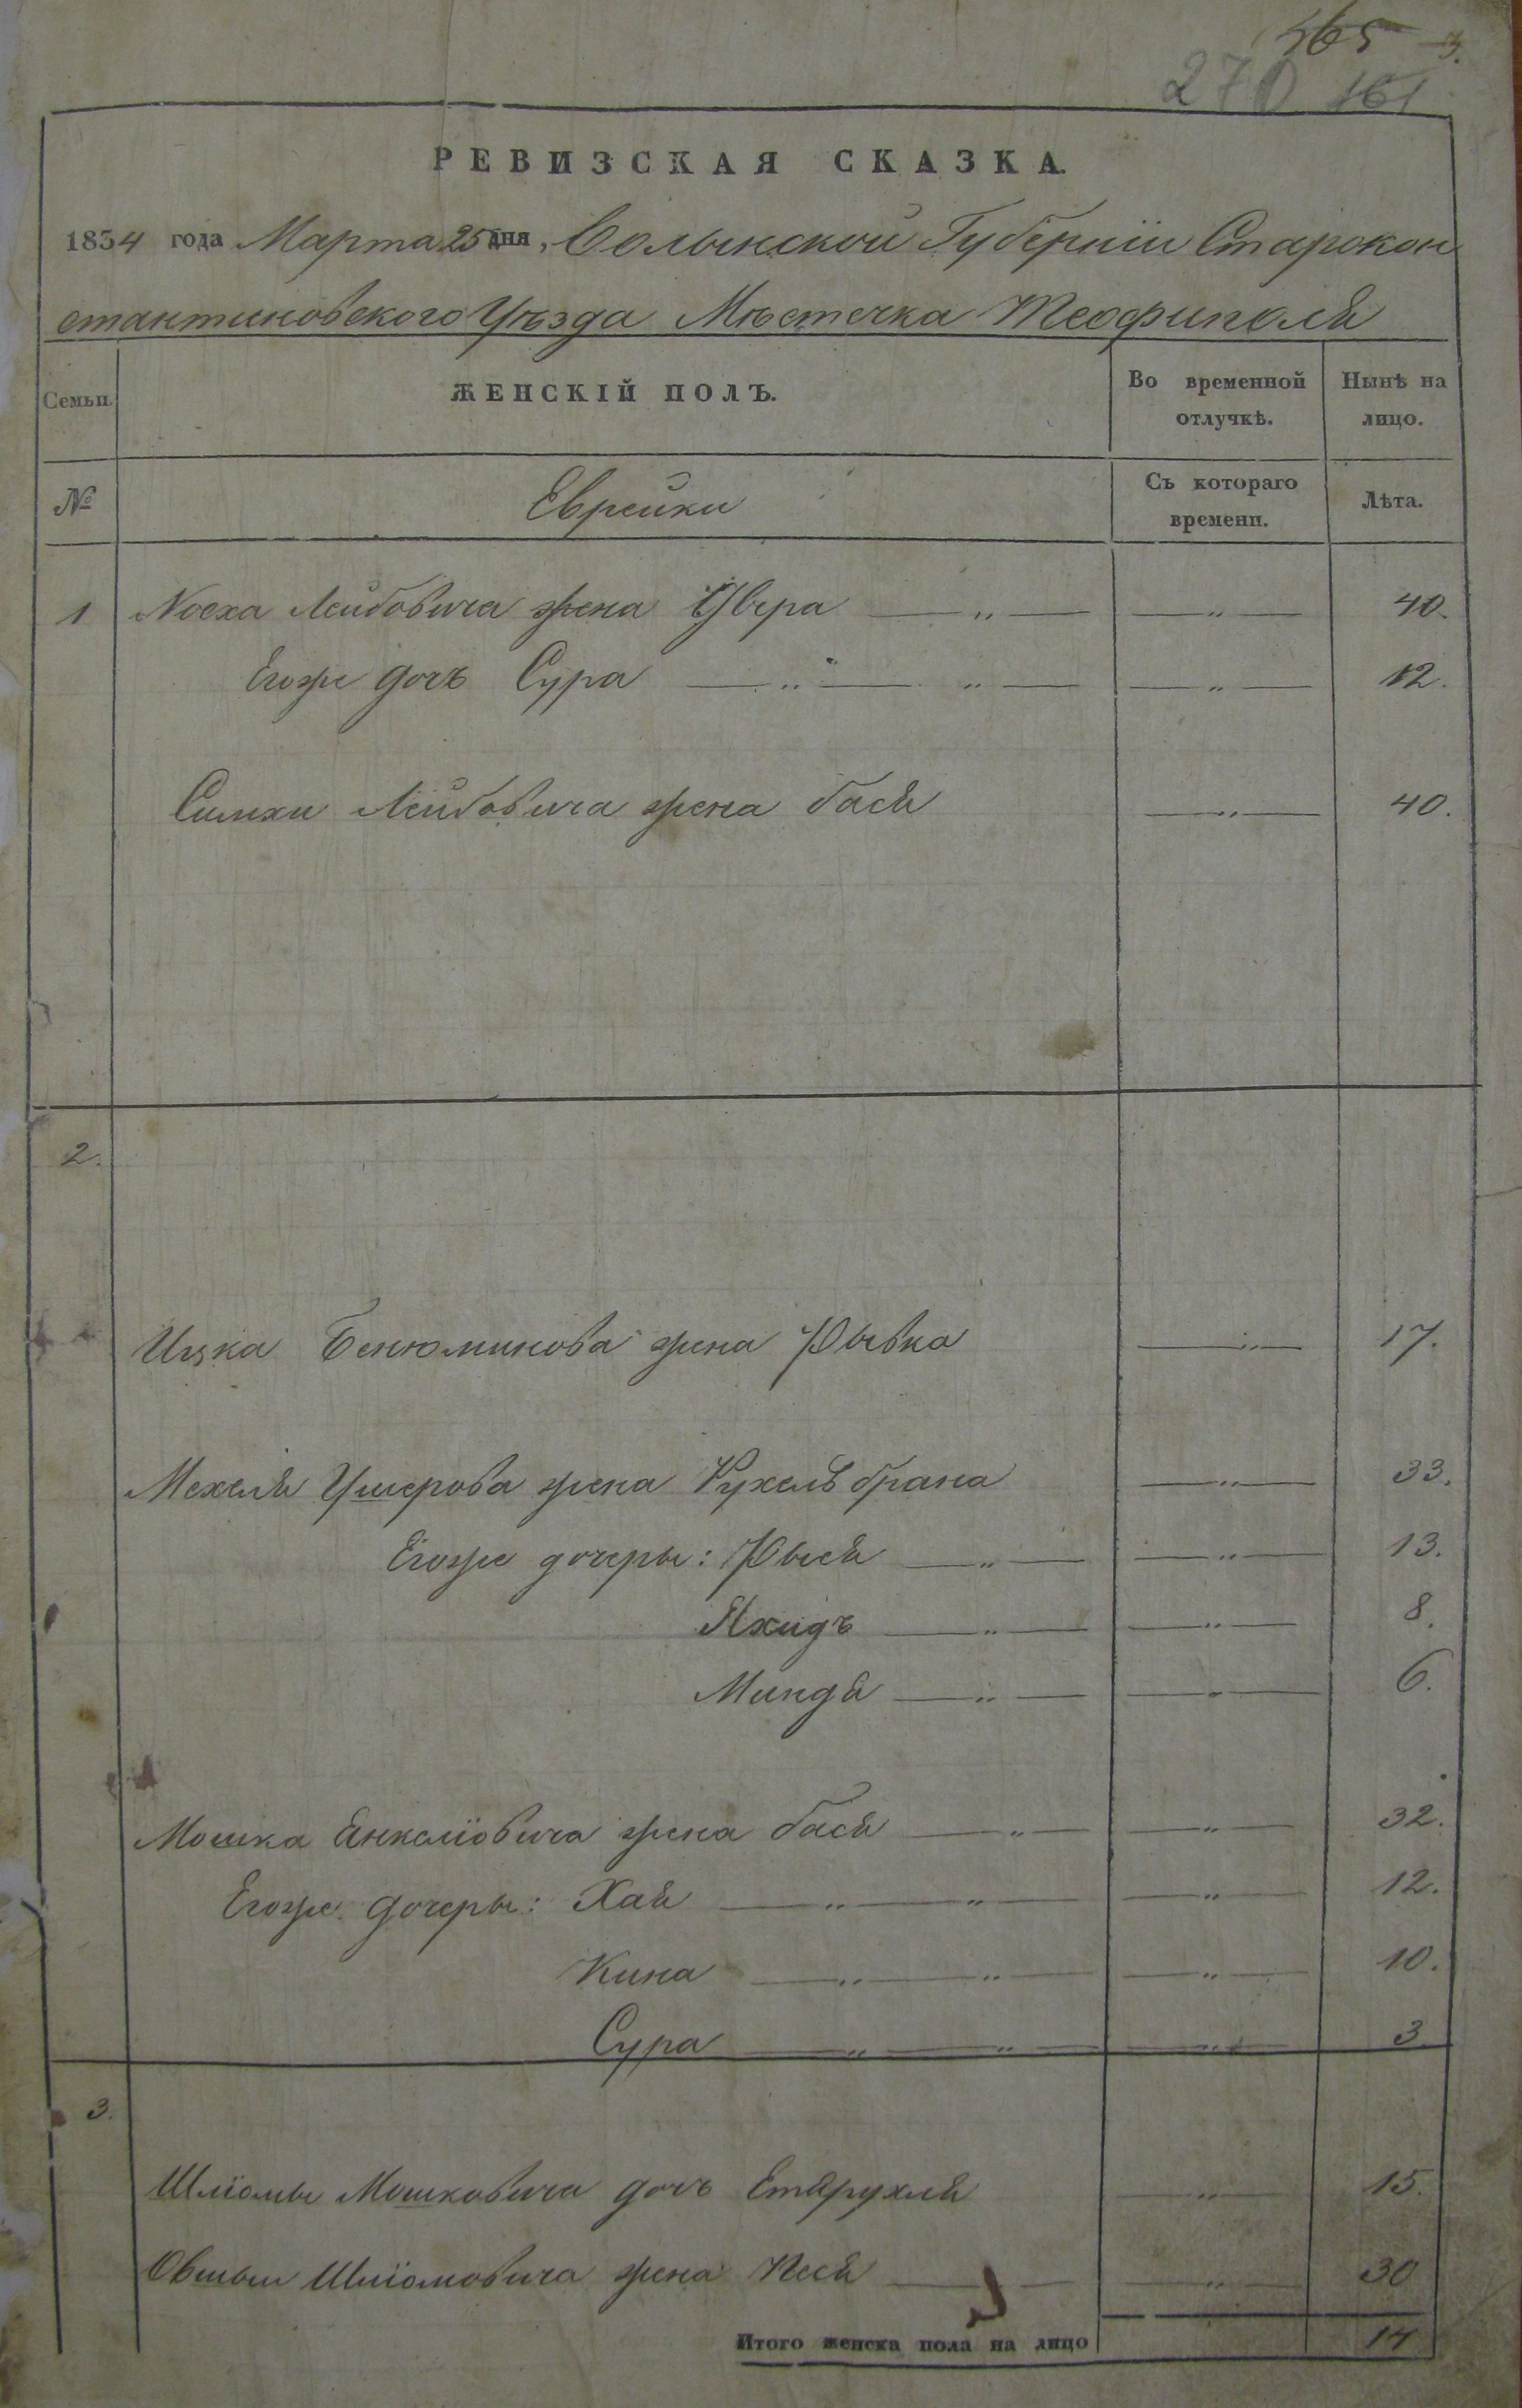 365 3.
270 161
РЕВИЗСКАЯ СКАЗКА.
1834 года Марта 25 дня, Волынской Губерніи Старокон
стантиновского Уѣзда Мѣстечка Теофиполя
Семьи. ЖЕНСКІЙ ПОЛЪ. Во временной отлучкѣ. Нынѣ на лицо.
№ Еврейки Съ котораго времени. Лѣта.
1 Носха Лейбовича жена Двера — „ — — „ — 40.
Егоже дочъ Сура — „ — „ — — „ — 12.
Симхи Лейбовича жена бася — „ — 40.
2.
Ицка Бенюминова жена Рывка — „ — 17.
Мехеля Ушерова жена Рухель брана — „ — 33.
Егоже дочеры: Рыся — „ — — „ — 13.
Яхидъ — „ — — „ — 8.
Миндя — „ — — „ — 6.
Мошка Янкелiовича жена бася — „ — — „ — 32.
Егоже дочеры: Хая — „ — „ — — „ — 12.
Кина — „ — „ — — „ — 10.
Сура — „ — „ — — „ — 3
3.
Шліомы Мошковича дочъ — „ — 15.
Овшыи Шліомовича жена Песя — „ — 30
Итого женска пола на лицо 14